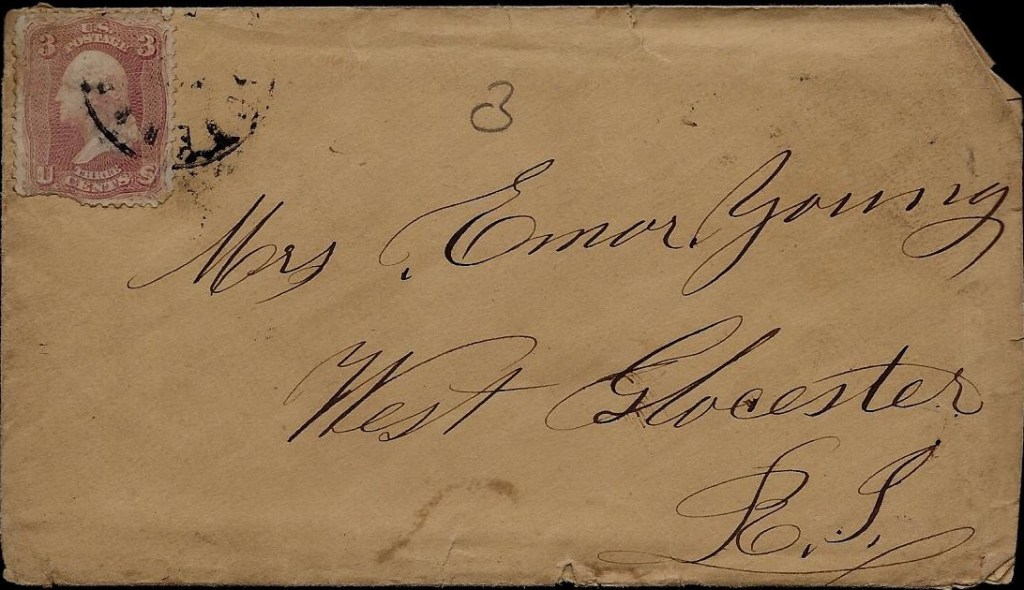 3 U.S. 3
POSTAGE
THREE
U CENTS S
3
Mrs. Emor Young
West Glocester
R.I.